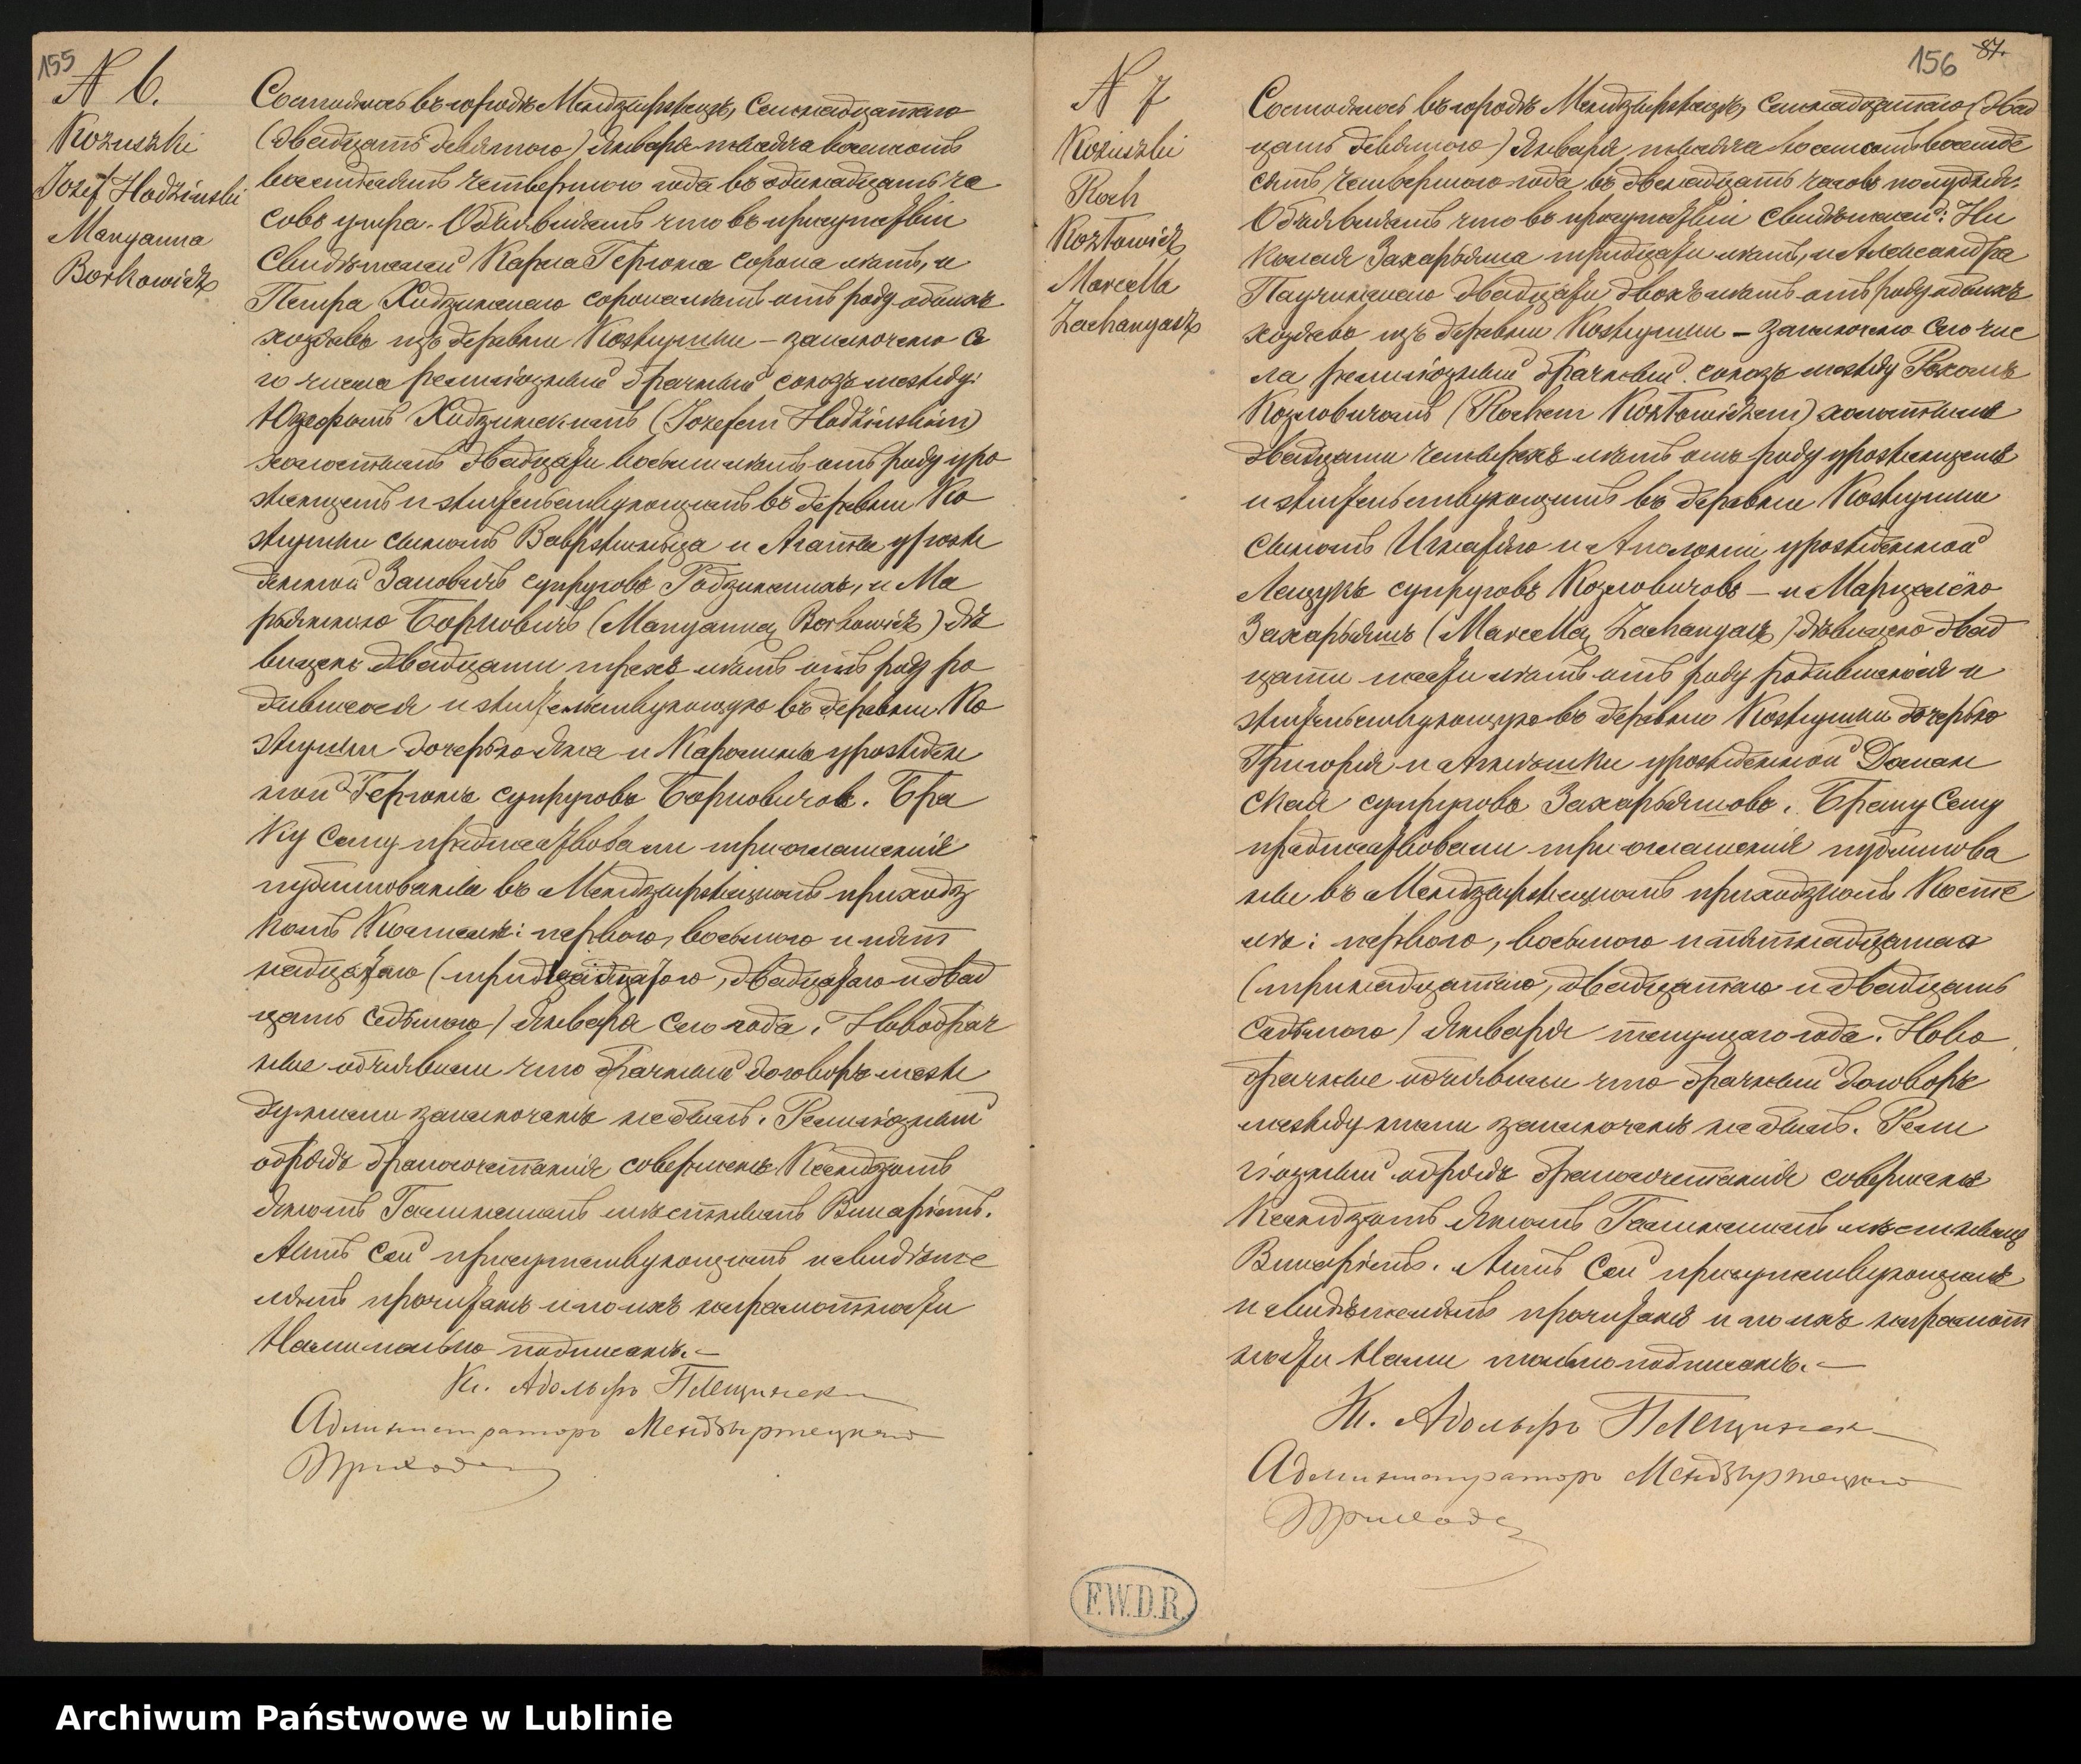 155
N 6.
Kożuszki
Józef Hodzinski
Maryanna
Borkowicz
Состоялось въ городѣ Мендзыржецѣ, Семнадцатаго
(двадцать девятаго) Января тысяча восемьсотъ
восемдесятъ четвертаго года въ одинадцать ча
совъ утра. Объявляемъ что въ присутствіи
свидѣтелей Карла Герлюка сорока лѣтъ, и
Петра Ходзинскаго сорока лѣтъ отъ роду обоихъ
хозяевъ изъ деревни Кожушки – заключено се
го числа религіозный брачный союзъ между:
Юзефомъ Ходзинскимъ (Józefem Hodzinskim)
холостымъ двадцати восьми лѣтъ отъ роду уро
женцемъ и жительствующимъ въ деревни Ко
жушки сыномъ Вавржинца и Агаты урож
денной Зановичъ супруговъ Годзинскихъ, и Ма
ріянною Борковичъ (Maryanną Borkowicz) дѣ
вицею двадцати трехъ лѣтъ отъ роду ро
дившеюся и жительствующую въ деревни Ко
жушки дочерью Яна и Каролины урожден
ной Герлюкъ супруговъ Борковичовъ. Бра
ку сему предшествовали три оглашенія
публикованы въ Мендзыржецкомъ приходз
комъ Костелѣ: перваго, восьмаго и пят
надцатаго (тринадцатаго, двадцатаго и двад
цать седьмаго) Января сего года. Новобрач
ные объявили что брачный договоръ меж
ду ними заключенъ небылъ. Религіозный
обрядъ бракосочетанія совершенъ Ксендзомъ
Яномъ Галинскимъ мѣстнымъ Викаріемъ.
Актъ сей присутствующимъ и свидѣте
лямъ прочитанъ и по ихъ неграмотности
Нами только подписанъ. –
Кс. Адольфъ Плещинскій
Администраторъ Мендзыржецкаго
Прихода
156
87.
N 7
Kożuszki
Roch
Kozłowicz
Marcella
Zacharyasz
Состоялось въ городѣ Мендзыржецѣ, Семнадцатаго (двад
цать девятаго) Января тысяча восемьсотъ восемде
сятъ четвертаго года въ двенадцать часовъ полудня.
Объявляемъ что въ присутствіи свидѣтелей: Ни
колая Захарьяша тридцати лѣтъ, и Александра
Паучинскаго двадцати двохъ лѣтъ отъ роду обоихъ
хозяевъ изъ деревни Кожушки – заключено сего чис
ла религіозный брачный союзъ между Рохомъ
Козловичомъ (Rochem Kozłowiczem) холостымъ
двадцати четырехъ лѣтъ отъ роду уроженцемъ
и жительствующимъ въ деревни Кожушки
сыномъ Игнатія и Аполоніи урожденной
Лещукъ супруговъ Козловичовъ – и Марцелею
Захарьяшъ (Marcellą Zacharyasz) дѣвицею двад
цати шести лѣтъ отъ роду родившеюся и
жительствующую въ деревни Кожушки дочерью
Григорія и Агнѣшки урожденной Доман
ская супруговъ Захарьяшовъ. Браку сему
предшествовали три оглашенія публикова
ны въ Мендзыржецкомъ приходзкомъ Косте
лѣ: перваго, восьмаго и пятнадцатаго
(тринадцатаго, двадцатаго и двадцать
седьмаго) Января текущаго года. Ново
брачные объявили что брачный договоръ
между ними заключенъ небылъ. Рели
гіозный обрядъ бракосочетанія совершенъ
Ксендзомъ Яномъ Галинскимъ мѣстнымъ
Викаріемъ. Актъ сей присутствующимъ
и свидѣтелямъ прочитанъ и по ихъ неграмот
ности Нами только подписанъ. –
Кс. Адольфъ Плещинскій
Администраторъ Мендзыржецкаго
Прихода
F.W.D.R.
Archiwum Państwowe w Lublinie